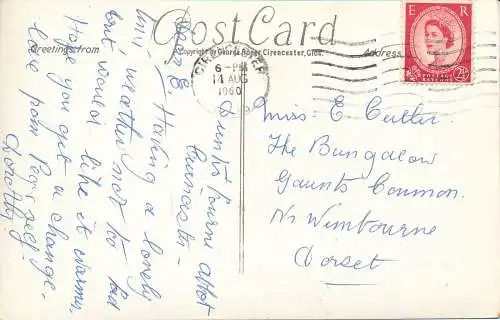 Post Card
Greetings from
Copyright by George Roper, Cirencester, Glos.
Address
CIRENCESTER
6-PM
14 AUG
1960
E R
2½
Miss. E. Cutler.
The Bungalow
Gaunts Common.
Nr Wimbourne
Dorset
Duntisbourne Abbot
Cirencester
Dear E. Having a lovely
time weather not to bad
but would like it warmer.
Hope you get a change.
love from
Dorothy